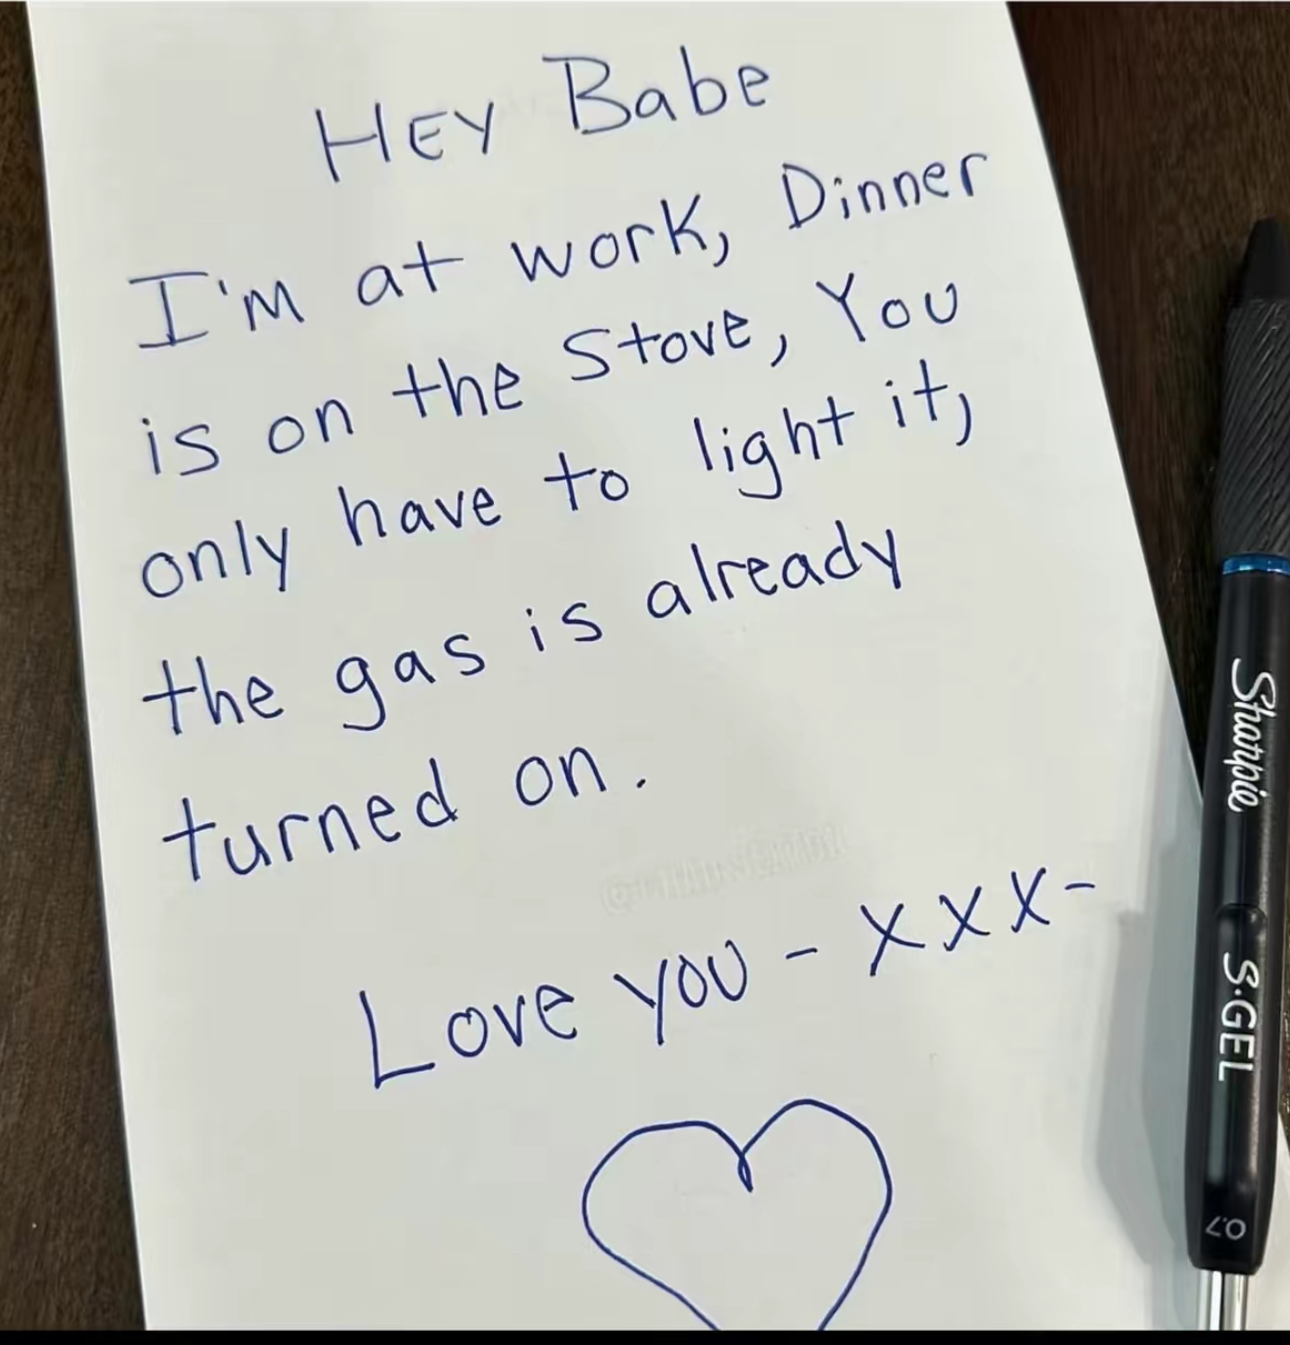 HEY Babe
I'm at work, Dinner
is on the Stove, You
only have to light it,
the gas is already
turned on.
Love you - XXX-
Sharpie
S·GEL
0.7